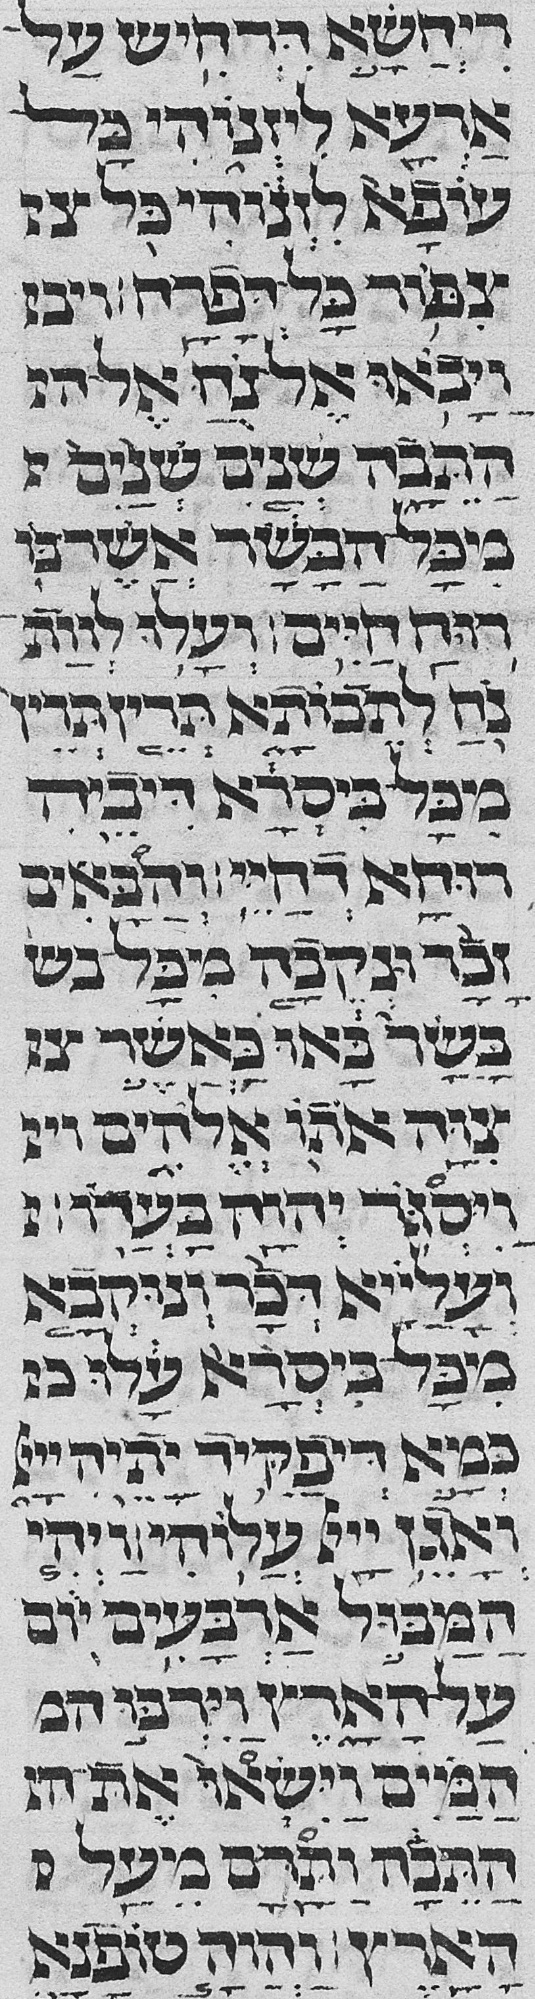 רִיחְשָׁא דִּרְחֵישׁ עַל
אַרְעָא לִיזְנוֹהִי כָּל
עוֹפָא לִזְנוֹהִי כָּל צי
צִפּוֹר כָּל דְּפָרַח׃ ויבו
וַיָּבֹאוּ אֶל נֹחַ אֶל הו
הַתֵּבָה שְׁנַיִם שְׁנַיִם י
מִכָּל הַבָּשָׂר אֲשֶׁר בּוֹ
רוּחַ חַיִּים׃ וְעָלוּ לְוַת
נֹחַ לְתֵבוֹתָא תְּרֵין תְּרֵין
מִכָּל בִּיסְרָא דִּיבֵיהּ
רוּחָא דְחַיֵּי׃ וְהַבָּאִים
זָכָר וּנְקֵבָה מִכָּל בש
בָּשָׂר בָּאוּ כַּאֲשֶׁר צו
צִוָּה אֹתוֹ אֱלֹהִים וי
וַיִּסְגֹּר יְהוָה בַּעֲדוֹ׃ ו
וְעָלַיָּיא דְּכַר וְנוּקְבָא
מִכָּל בִּיסְרָא עָלוּ כו
כְּמָא דִּיפַקֵּיד יָתֵיהּ ייי
וַאֲגֵן ייי עֲלוֹהִי׃ וַיְהִי
הַמַּבּוּל אַרְבָּעִים יוֹם
עַל הָאָרֶץ וַיִּרְבּוּ המ
הַמַּיִם וַיִּשְׂאוּ אֶת הו
הַתֵּבָה וַתָּרָם מֵעַל ו
הָאָרֶץ׃ וַהֲוָה טוֹפָנָא